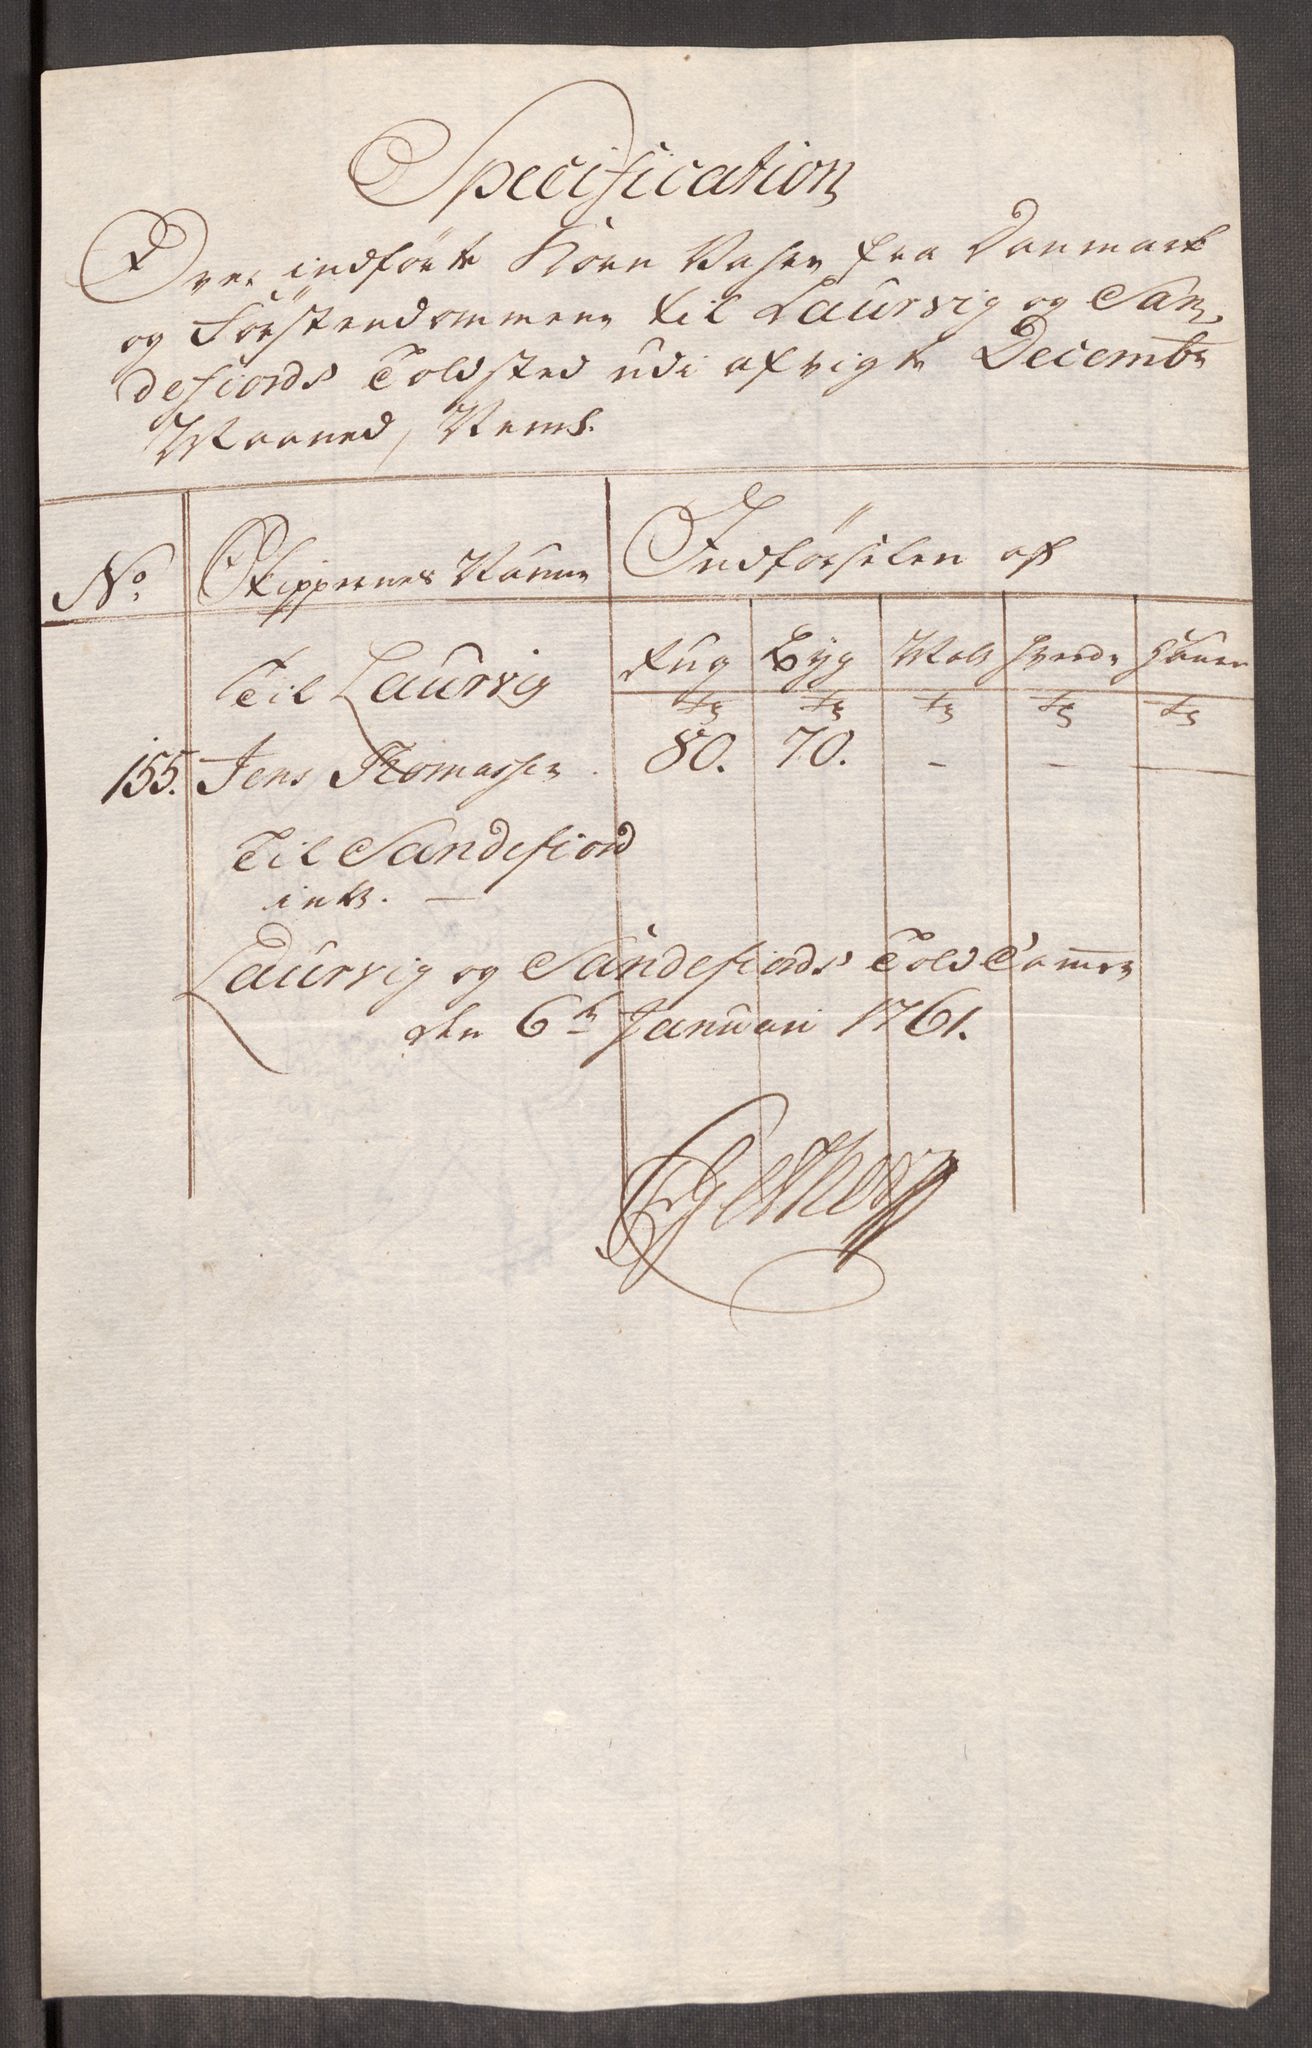 Specification
Over indførte Korn Vahre fra Danmark
og Førstendommene til Laurvig og San,
defiords Toldsted udi afvigte Decembr
Maaned, Neml.
No. Skippernes Nafne Indførselen af
Til Laurvig Rug Byg Malt Hvede Haure
Tr Tr Tr Tr Tr
155. Jens Thomassen. 80. 70. - - -
Til Sandefiord
intt. —
Laurvig og Sandefiords Told Camer
den 6te Januari 1761.